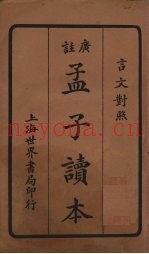 言文對照
廣註
孟子讀本
上海世界書局印行